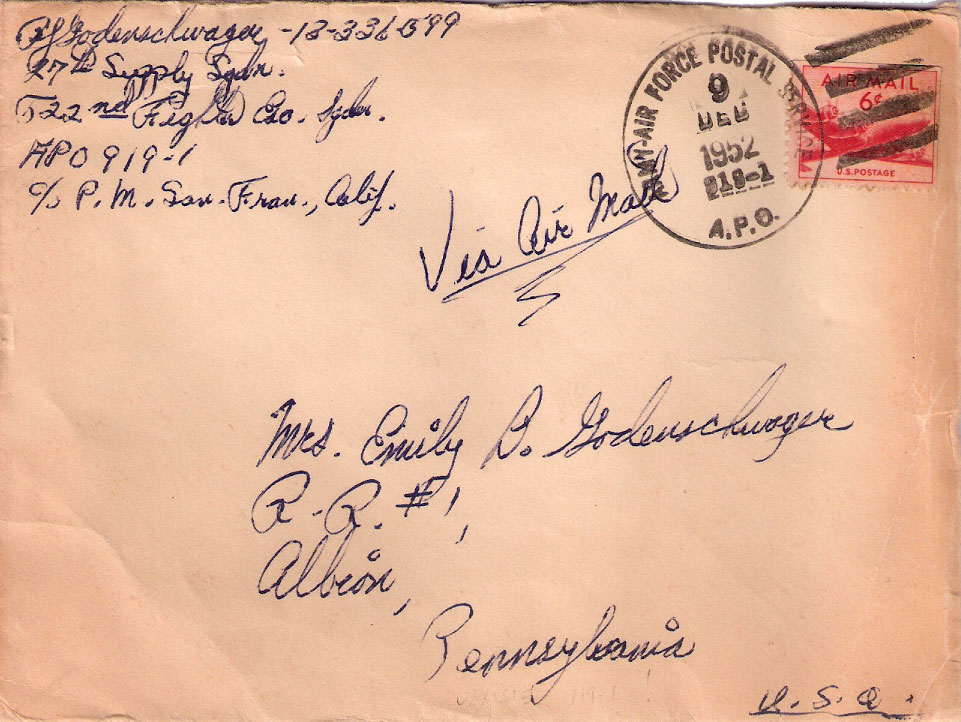 Godenschwager - 13-336599
27th Supply Sqdn.
Fighter
APO 919-1
c/o P.M. San. Fran., Calif.
ARMY-AIR FORCE POSTAL SERVICE
9
DEC
1952
919-1
A.P.O.
AIR MAIL
6¢
U.S. POSTAGE
Via Air Mail
Mrs. Emily B. Godenschwager
R.R. #1,
Albion,
Pennsylvania
U.S.A.